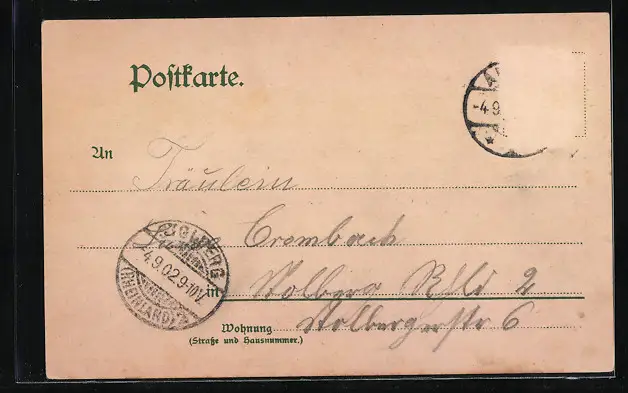 Postkarte.
-4.9.
An Fräulein
Crembach
in Stolberg Rhld 2
Wohnung Stolbergerstr 6
(Straße und Hausnummer.)
STOLBERG
4.9.02.9-10V.
(RHEINLAND)